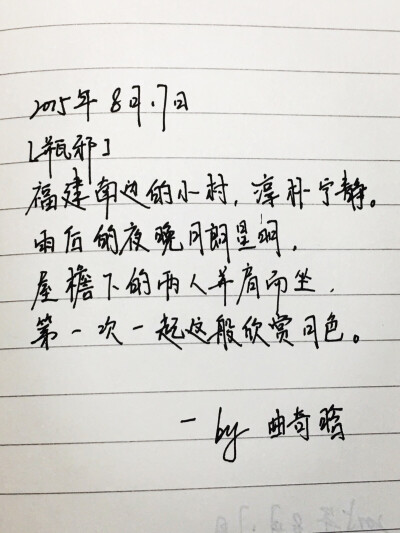 2015年8月.17日
[瓶邪]
福建南边的小村,淳朴宁静。
雨后的夜晚月朗星明,
屋檐下的两人并肩而坐,
第一次一起这般欣赏月色。
— by 曲奇